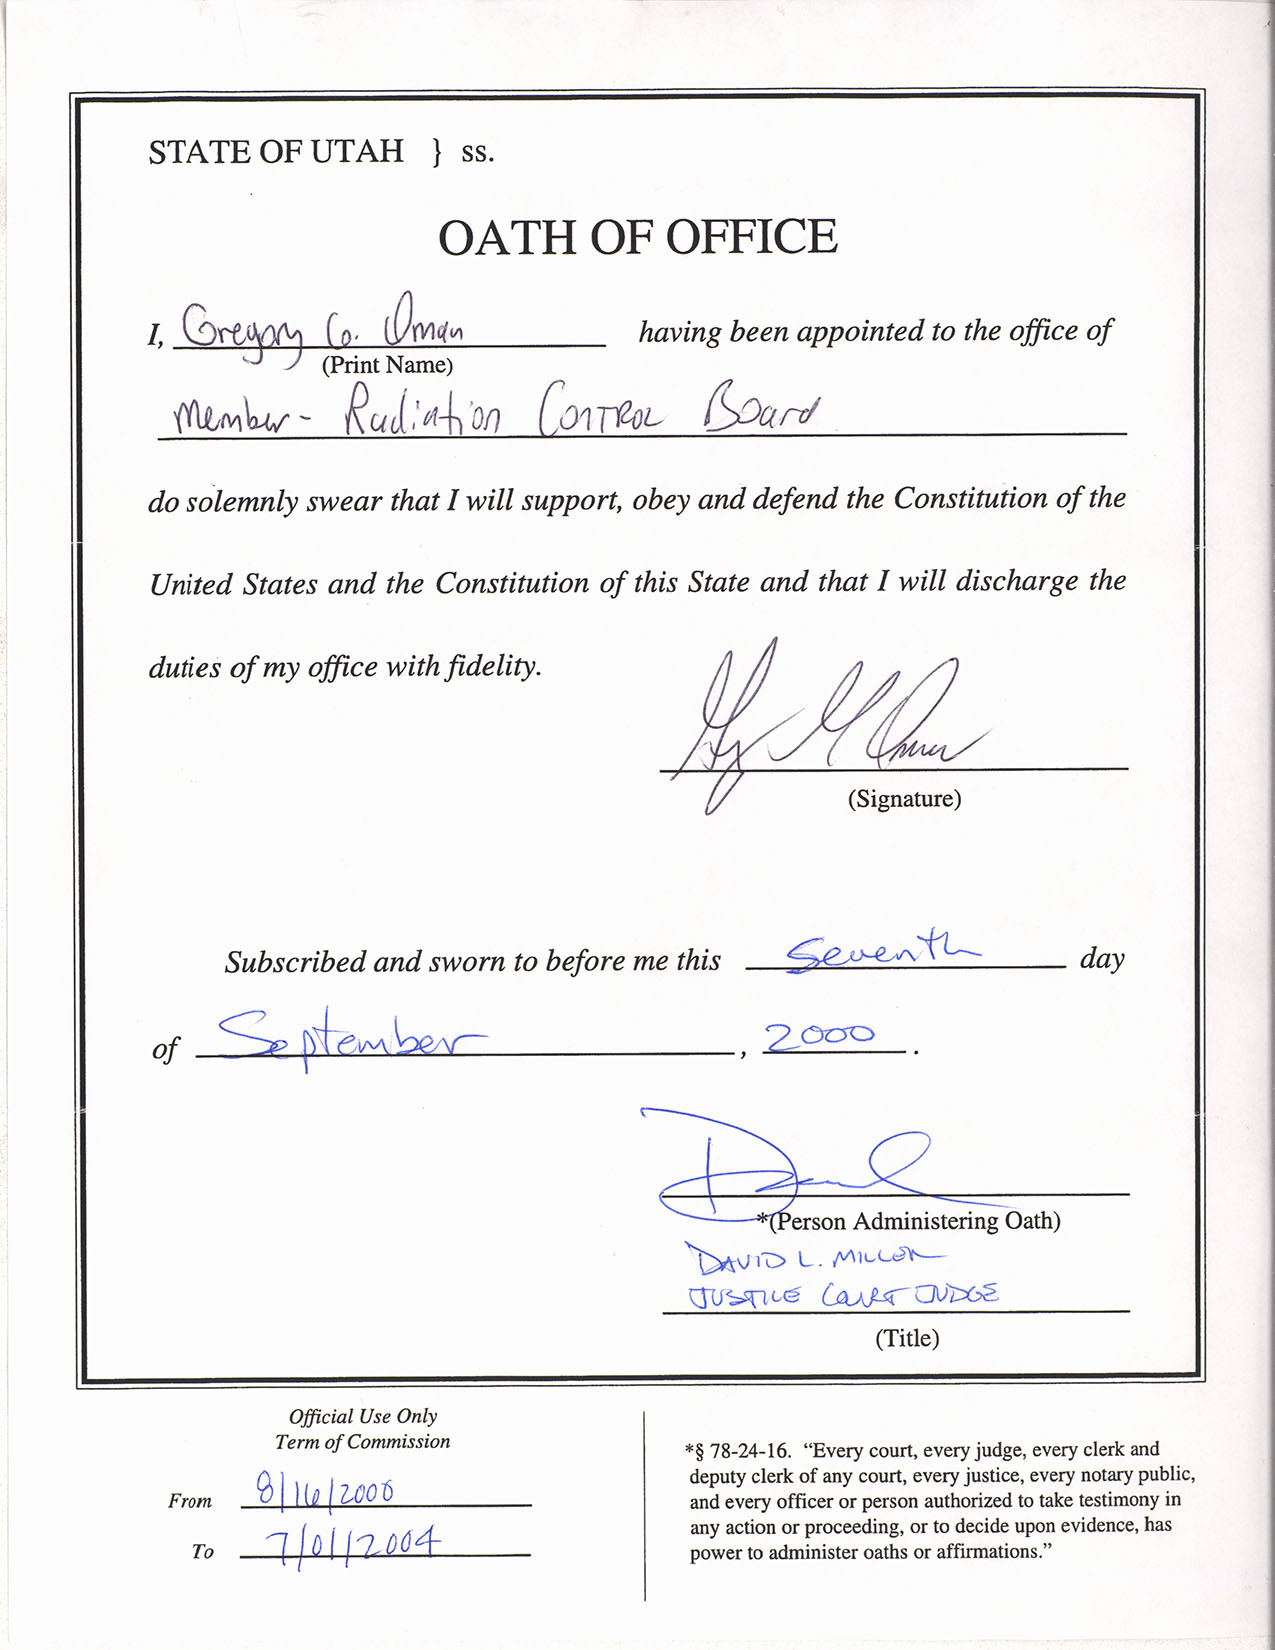 STATE OF UTAH } ss.
OATH OF OFFICE
I, Gregory G. Oman having been appointed to the office of
(Print Name)
Member - Radiation CONTROL Board
do solemnly swear that I will support, obey and defend the Constitution of the
United States and the Constitution of this State and that I will discharge the
duties of my office with fidelity.
(Signature)
Subscribed and sworn to before me this Seventh day
of September, 2000.
*(Person Administering Oath)
DAVID L. MILLER
JUSTICE COURT JUDGE
(Title)
Official Use Only
Term of Commission
From 8/16/2000
To 7/01/2004
*§ 78-24-16. "Every court, every judge, every clerk and
deputy clerk of any court, every justice, every notary public,
and every officer or person authorized to take testimony in
any action or proceeding, or to decide upon evidence, has
power to administer oaths or affirmations."